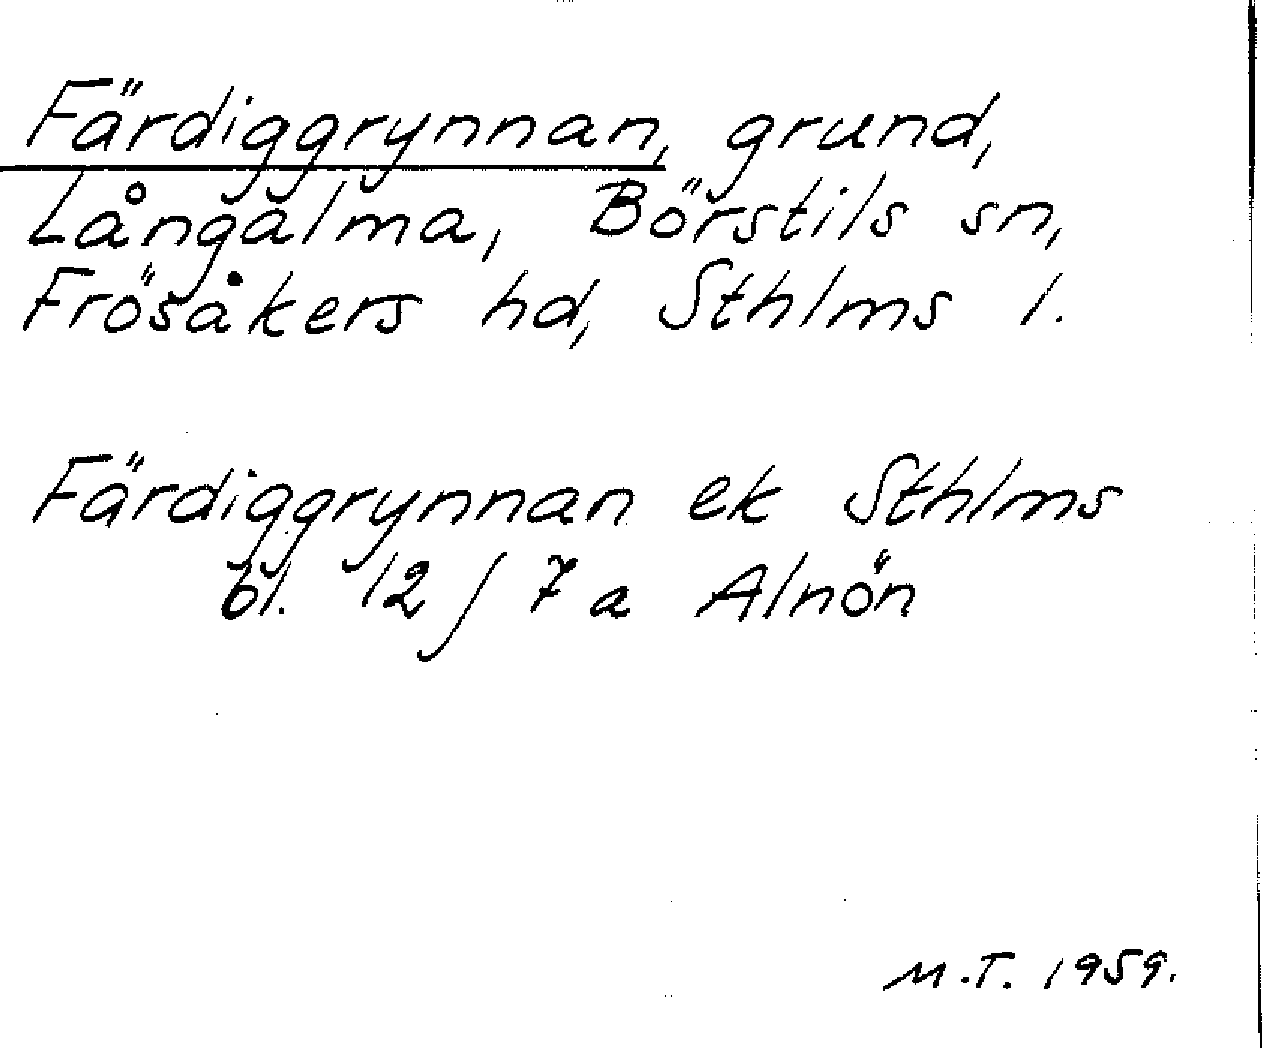 Färdiggrynnan, grund,
Långalma, Börstils sn,
Frösåkers hd, Sthlms l.
Färdiggrynnan ek Sthlms
bl. 12 / 7 a Alnön
M.T. 1959.